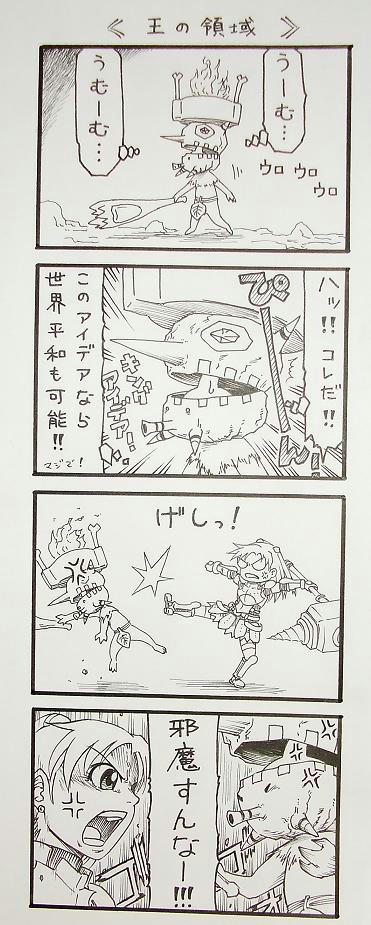 《 王の領域 》
うーむ…
うむーむ…
ウロ ウロ ウロ
ハッ!! コレだ!!
ぴーん!
キングアイデアーだ。
このアイデアなら
世界平和も可能!!
マジで!
げしっ!
邪魔すんなー!!!